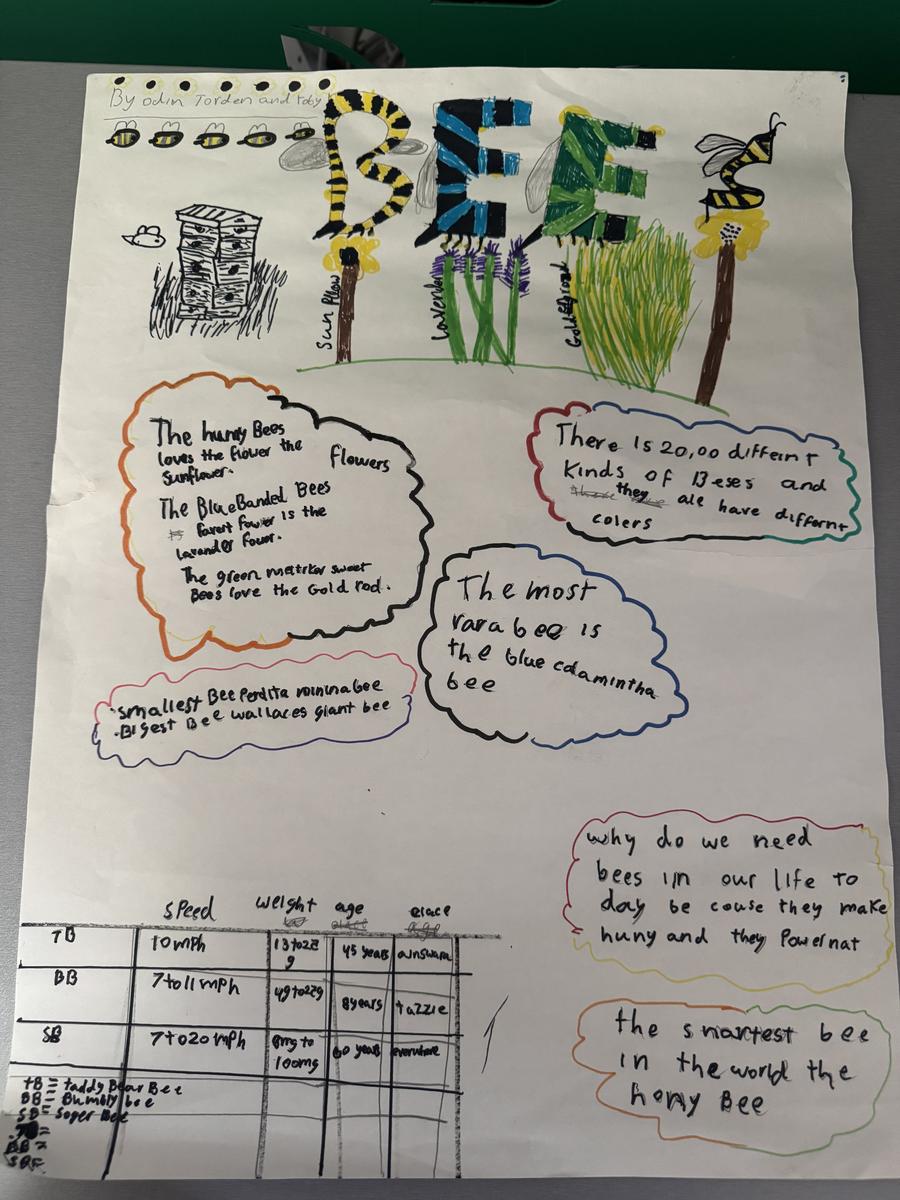 By odin Torden and toby
BEES
Sun flow
Lavender
The huny Bees
loves the flower the
Sunflower.
flowers
The BlueBanded Bees
favert fower is the
lavander fower.
The green metrker sweet
Bees love the Gold rod.
There is 20,00 differint
Kinds of Beses and
they all have differnt
colers
The most
rara bee is
the blue calamintha
bee
smallest Bee Perdita minimabee
Bigest Bee wallaces giant bee
why do we need
bees in our life to
day be couse they make
huny and they Powelnat
the smartest bee
in the world the
hony Bee
speed weight age place
TB 10 mph 13to22g 45 years ainswara
BB 7 to 11 mph 49to229 8years tazzie
SB 7 to 20 mph 8mg to 100mg 60 years everwhere
TB = taddy Bear Bee
BB = Bumbly bee
SB = Soger Bee
BB =